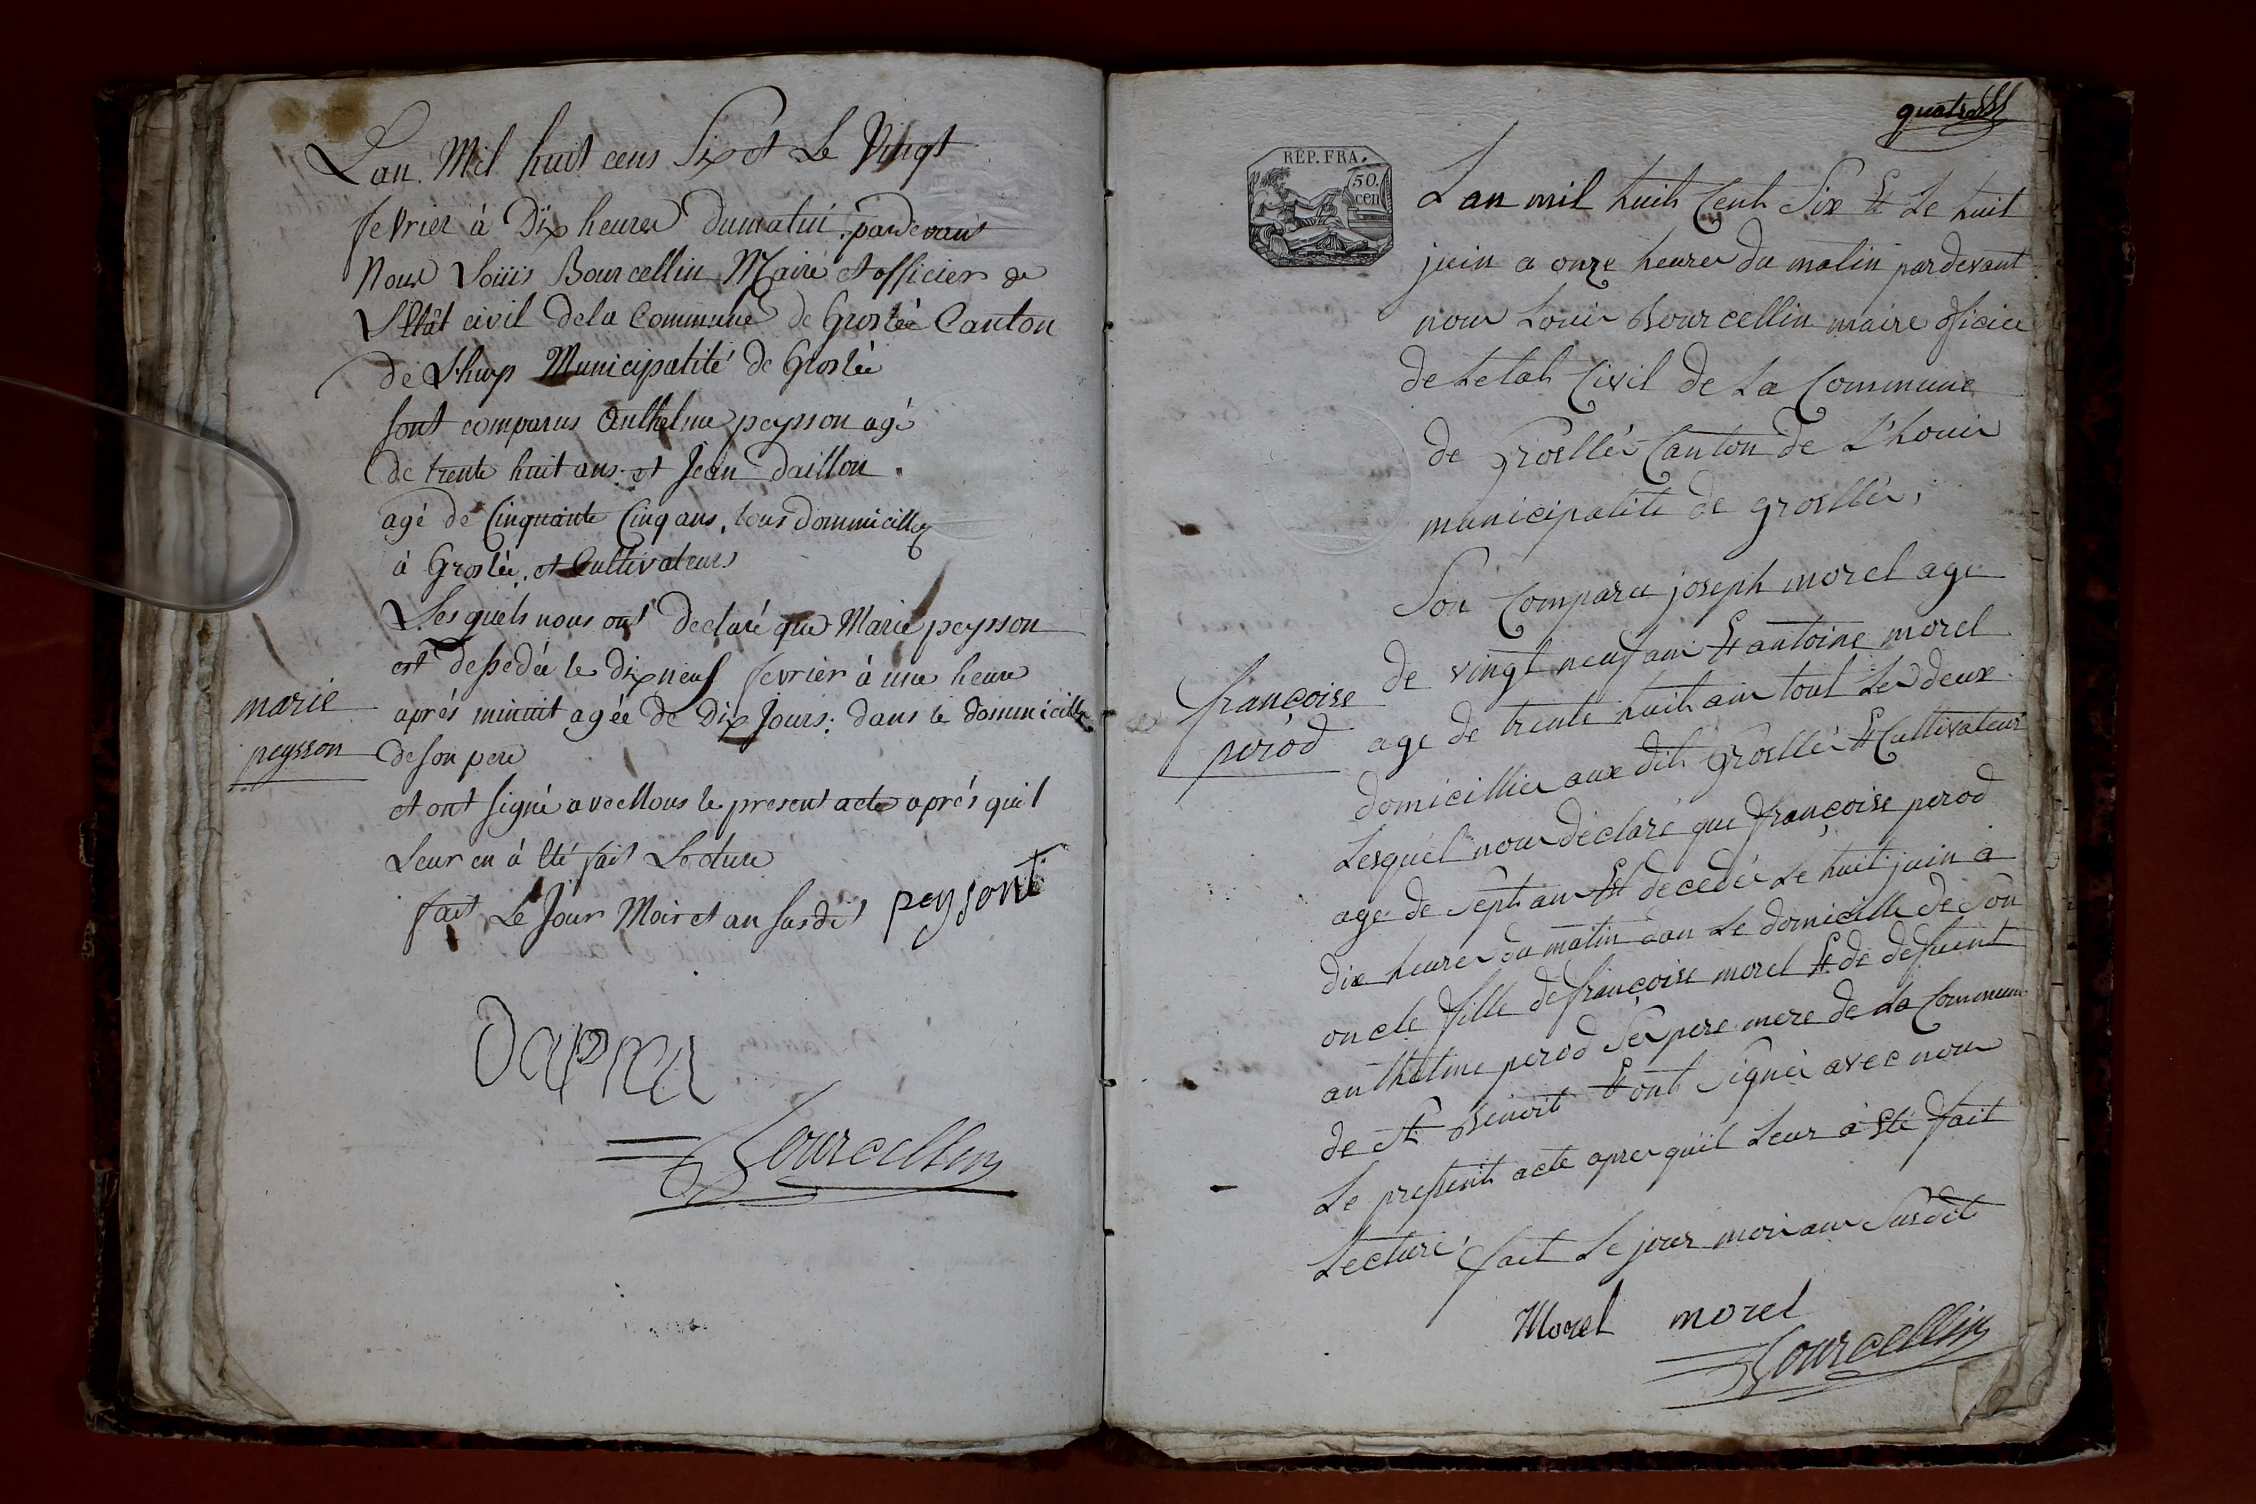 Lan. Mil huit cens Six et Le Vingt
fevrier à Dix heures dumatin : pardevant
Nous Loüis Bourcellin Maire et officier de
L'Etât civil dela Commune de Groslée Canton
de Lhuys Municipalité de Groslée
sont comparus Anthelme peysson agé
de trente huit ans. et Jean daillon.
agé de Cinquante Cinq ans, tous dommicilles
à Groslée, et Cultivateurs
Lesquels nous ont declaré que Marie peysson
est dessedée le Dix neuf fevrier à une heure
aprés minuit agée de Dix Jours: dans le dommicille
marie
peysson
de son pere
et ont signé avecNous le present acte aprés quil
Leur en à Eté fait Lecture
fait Le Jour Mois et an susdit peysont
Bourcellin
quatre
REP. FRA.
50.
cen
Lan mil huit Cent Six Et Le huit
juin a onze heures du matin pardevant
nous Louis Bourcellin maire oficier
de Letat Civil de La Commune
de Grosllée Canton de L'houis
municipalité de grosllée,
Son Comparu joseph morel age
de vingt neuf ans Et antoine morel
françoise
perod
age de trente huit ans tout Les deux
domicillies aux dit Grosllée Et Cultivateur
Lesquel nous déclaré que françoise perod
age de Sept ans Est decedée Le huit juin à
dix heures du matin dans Le domicille de Son
oncle fille de françoise morel Et de defuent
anthelme perod Ses pere mere de La Commune
de St Benoit Et ont Signée avec nous
Le present acte apres quil Leur à Eté fait
Lecture, fait Le jour mois ans Susdit
Morel morel
Bourcellin